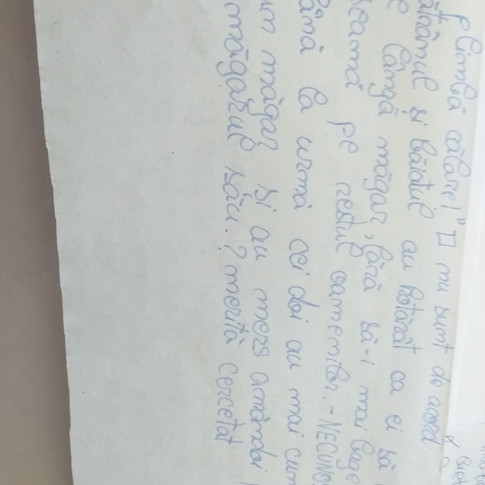 plimbă călare!" □ nu sunt de acord
ătrânul și băiatul au hotărât ca ei să
lângă măgar, fără să-i mai bage
seamă pe restul oamenilor. - NECUNOS
ână la urmă cei doi au mai cum
un măgar și au mers amândoi
măgarul său. ? merită cercetat